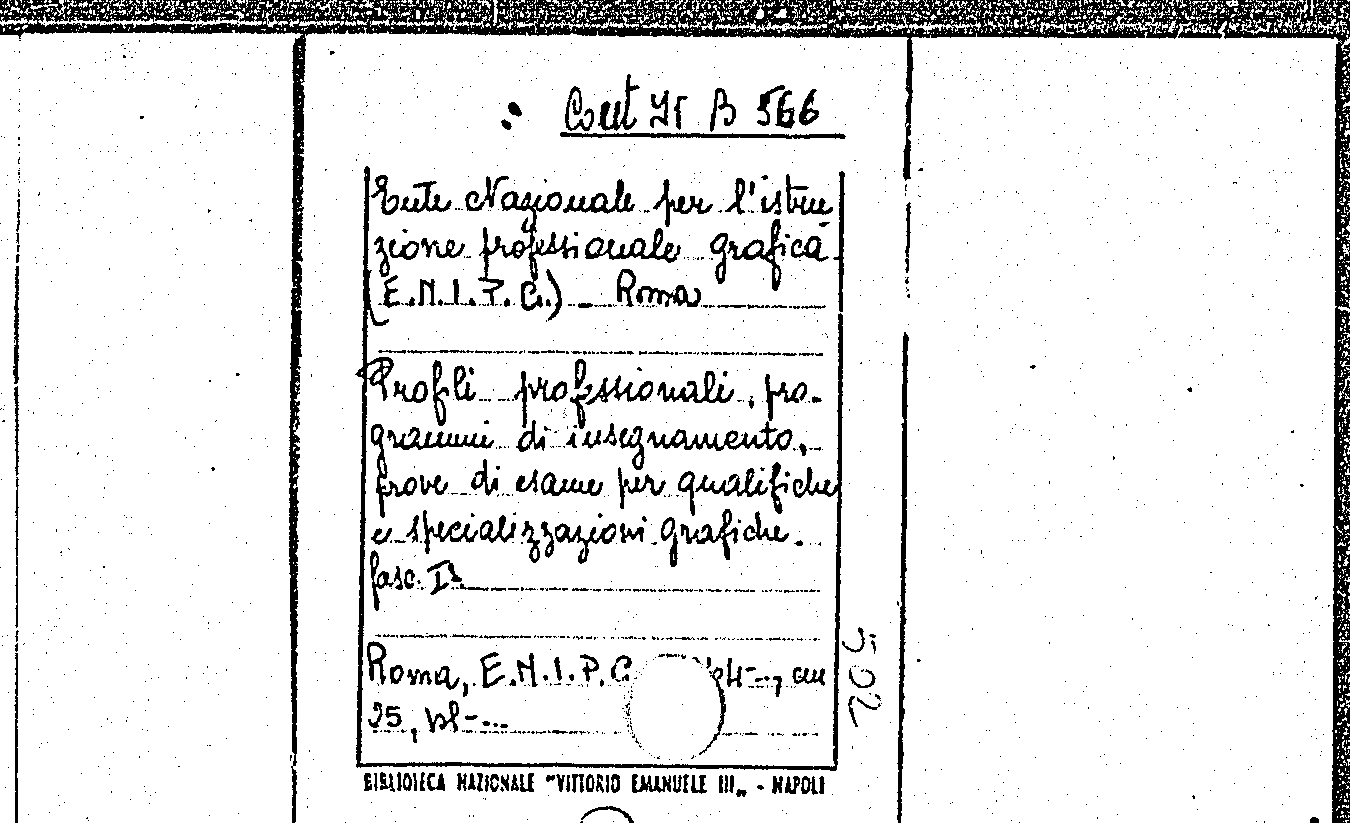 Cont. It B 566
Ente Nazionale per l'istru
zione professionale grafica
(E.N.I.P.G.) - Roma
Profili professionali, pro-
grammi di insegnamento,
prove di esame per qualifiche
e specializzazioni grafiche.
fasc. I
Roma, E.N.I.P.G.
25, vol-...
502
BIBLIOTECA NAZIONALE "VITTORIO EMANUELE III„ - NAPOLI